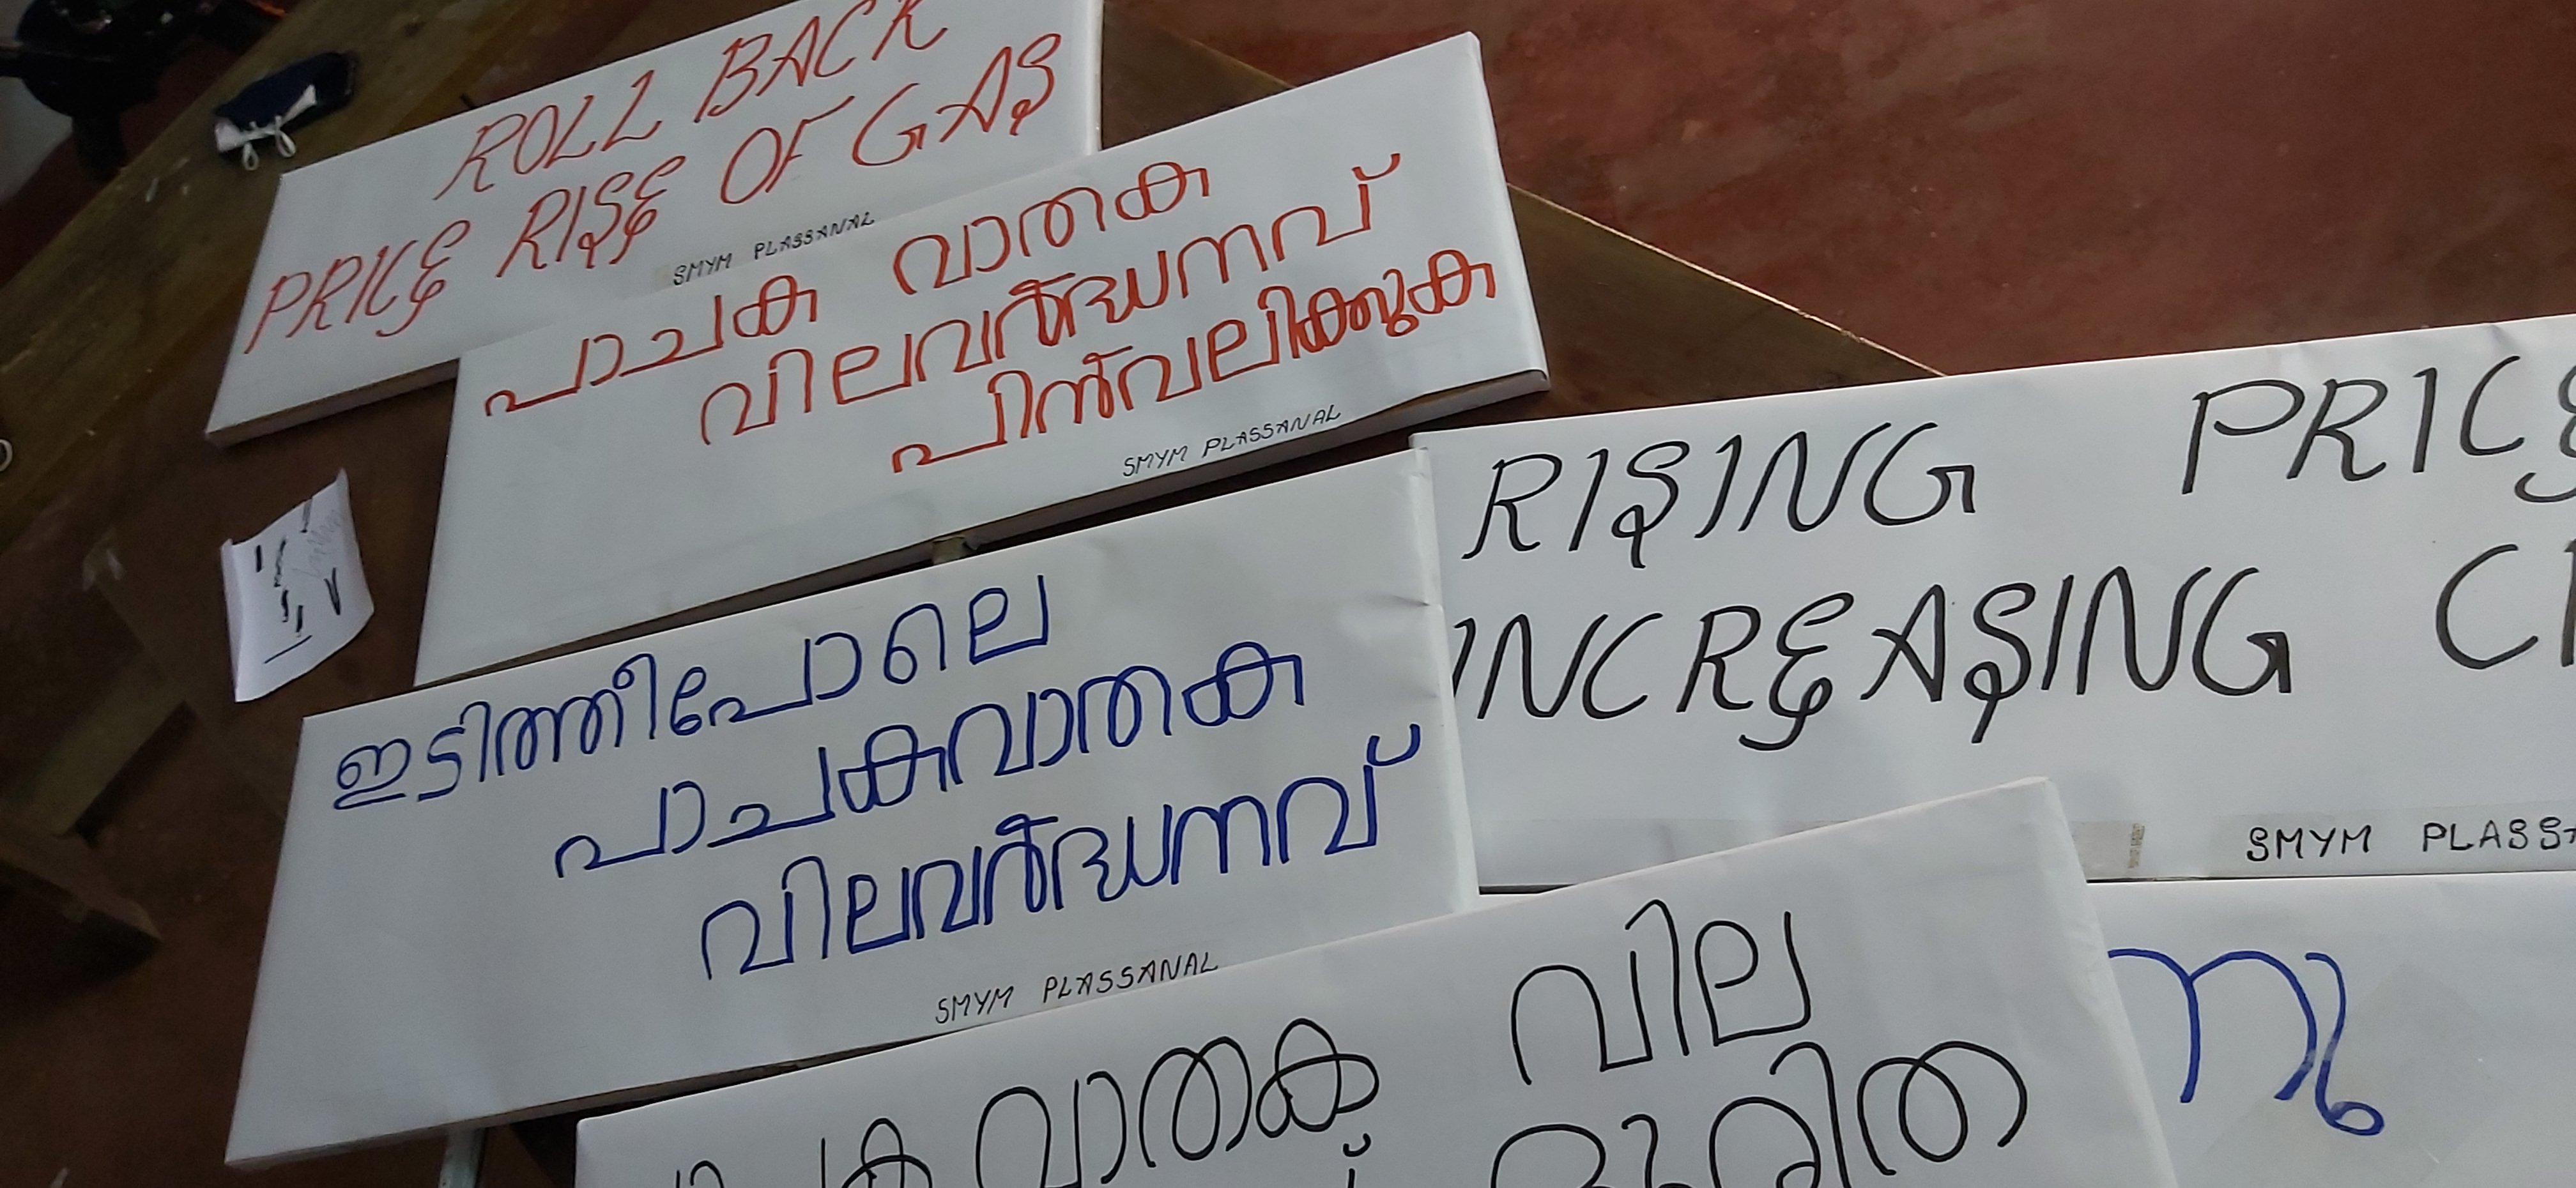 ROLL BACK
PRICE RISE OF GAS
SMYM PLASSANAL
പാചക വാതക
വിലവർദ്ധനവ്
പിൻവലിക്കുക
SMYM PLASSANAL
ഇടിത്തീപോലെ
പാചകവാതക
വിലവർദ്ധനവ്
SMYM PLASSANAL
RISING PRICE
INCREASING
SMYM
വാതക വില